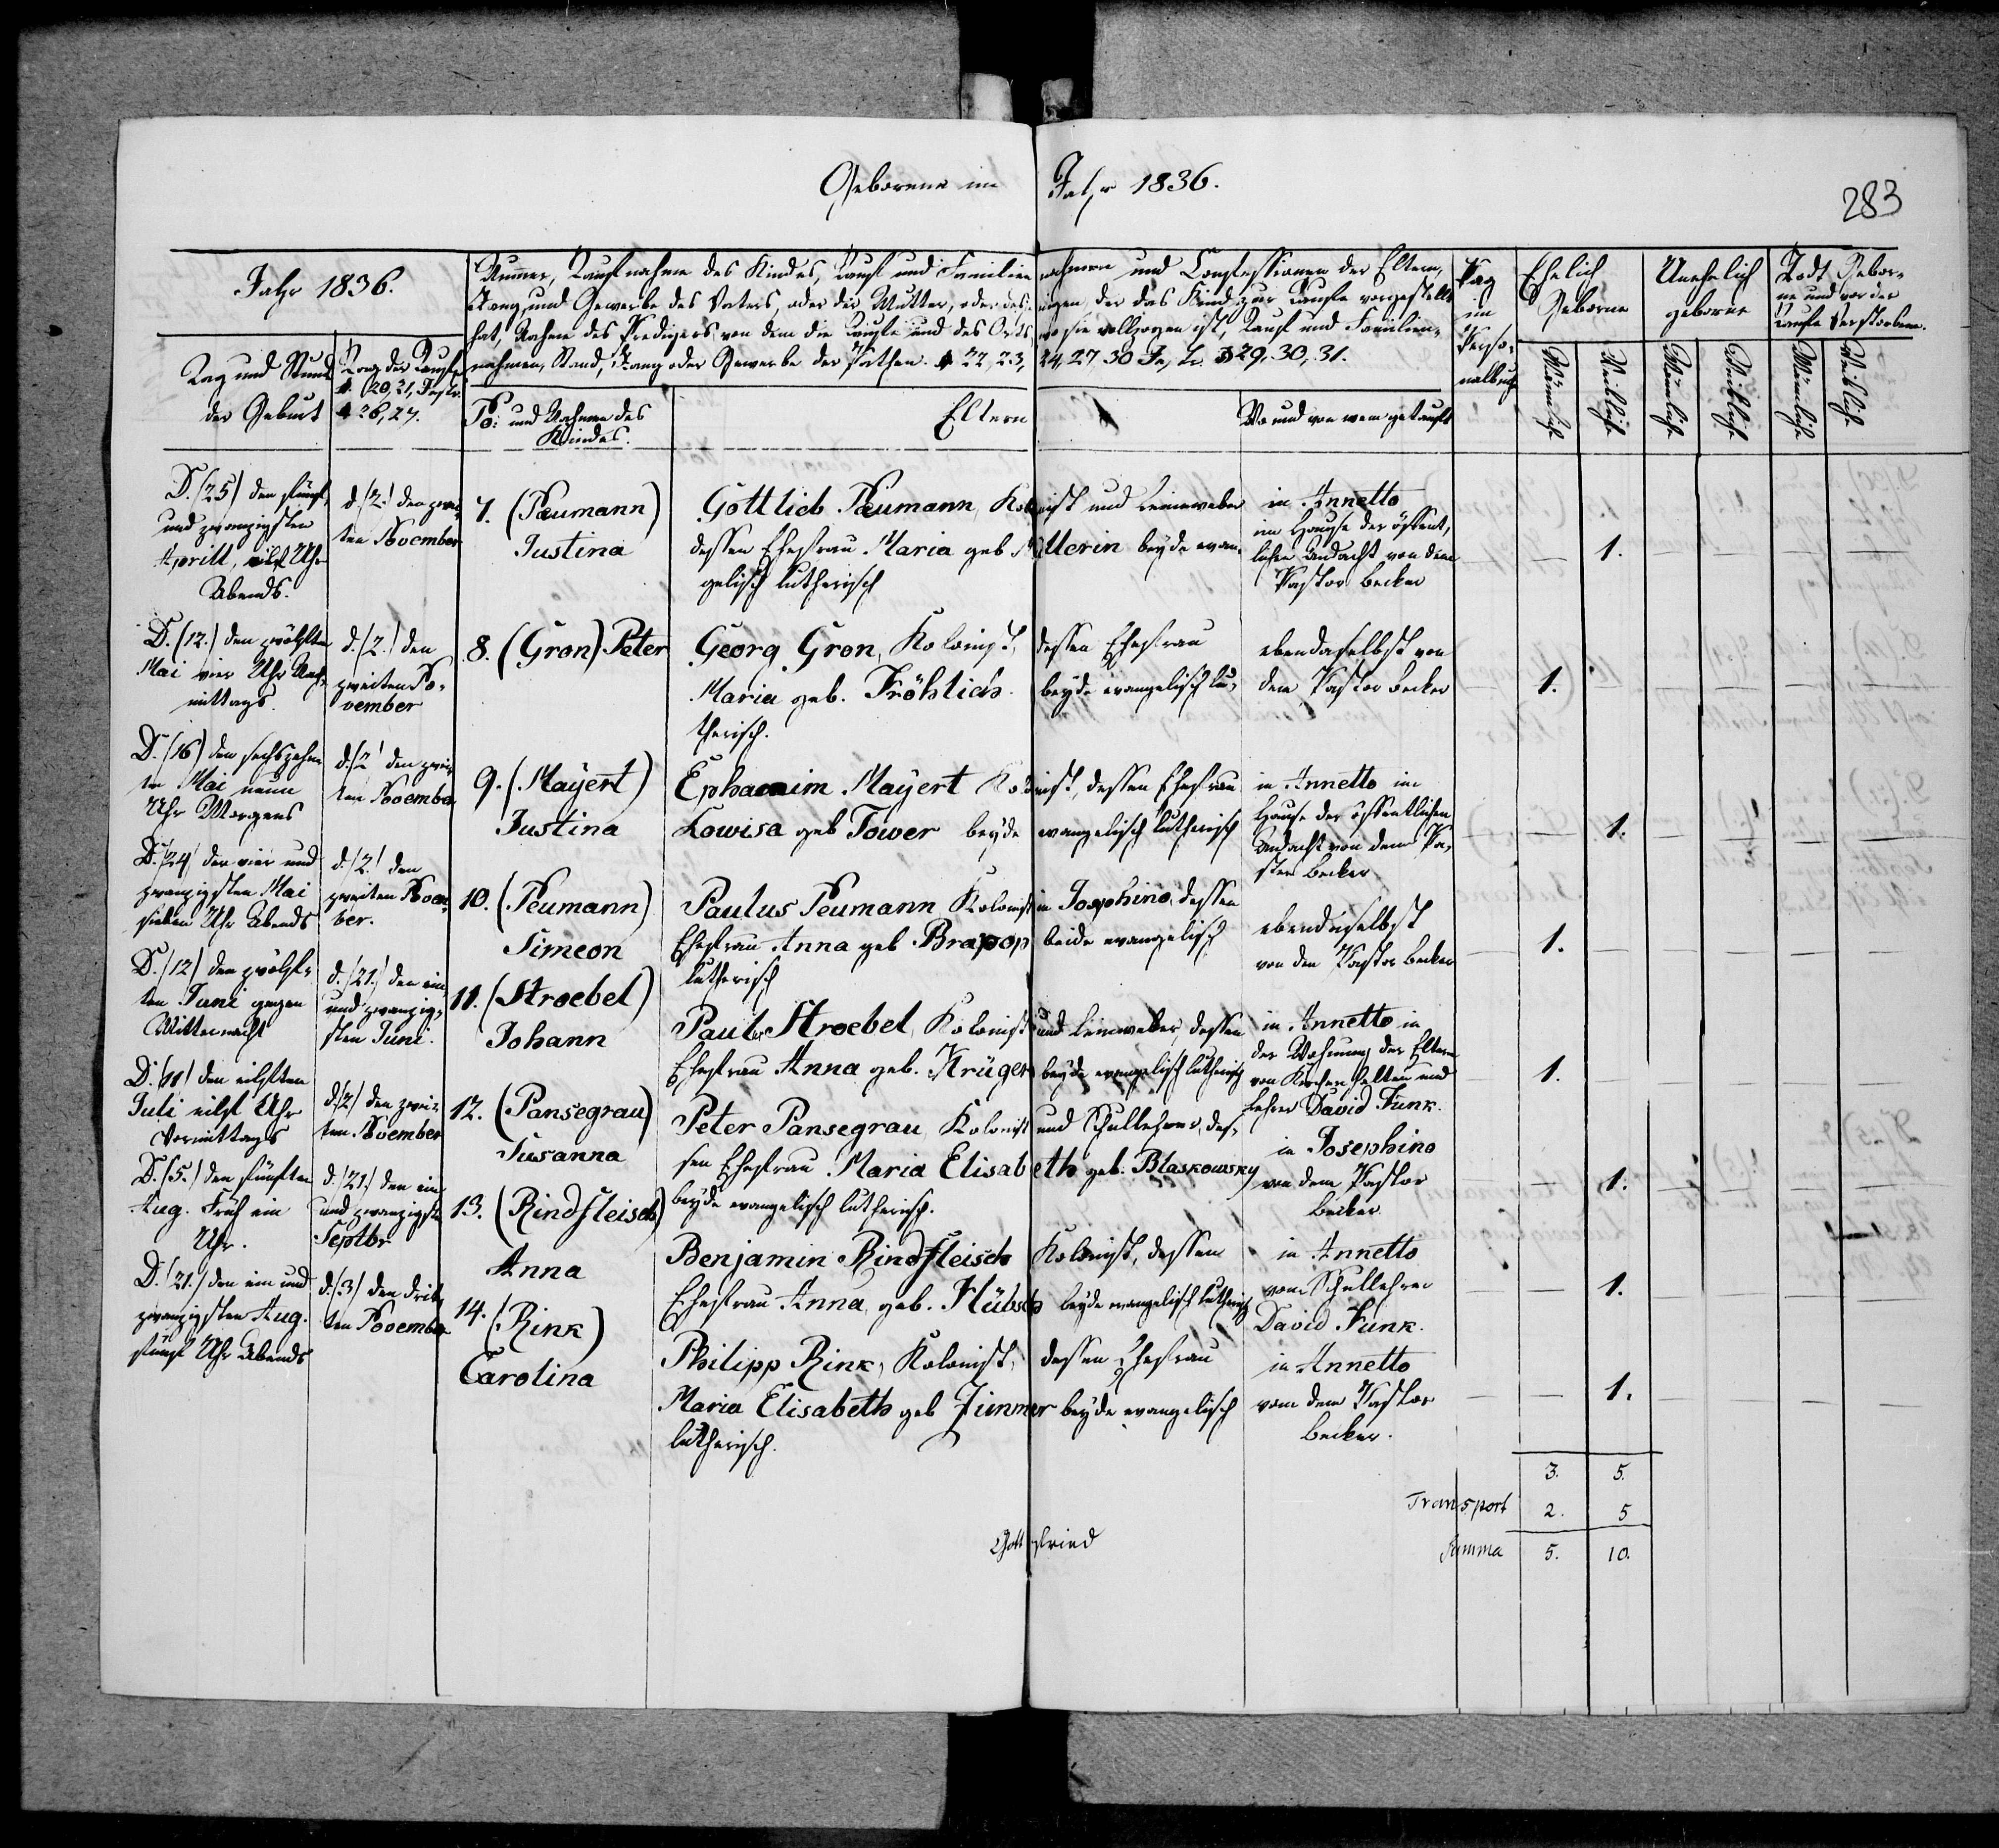 Geborene im Jahr 1836.
283
Jahr 1836.
Tag und Stunde
der Geburt
Tag der Taufe
§. (20, 21, Instr.
§ 26, 27.
Numer, Taufnahme des Kindes, Tauf und Familien nahmen und Confessionen der Eltern,
Rang, und Gewerbe des Vaters, oder der Mutter, oder desje nigen der das Kind zur Taufe vorgestellt
hat, Nahme des Predigers von dem die Taufe und des Orts wo sie vollzogen ist, Tauf und Familien-
nahmen, Stand, Rang oder Gewerbe der Pathen. § 22, 23, 24, 27, 30 29, 30, 31.
No: und Nahme des
Kindes.
Eltern
Wo und von wem getauft
Pag
im
Perso-
nalbuch
Ehelich
Geborne
Unehelich
geborne
Todt Gebor-
ne und vor der
Taufe Verstorbene.
Männliche
Weibliche
Männliche
Weibliche
Männliche
Weibliche
D. (25) den fünf
und zwanzigsten
Aprill, eilf Uhr
Abends.
d. (2.) den zwei-
ten November
7. (Neumann)
Justina
Gottlieb Neumann, Kolonist und Leineweber
dessen Ehefrau Maria geb Millerin beyde evan-
gelisch lutherisch
in Annetto
im Hause der öffent-
lichen Andacht von dem
Pastor Becker
1.
D. (12.) den zwölften
Mai vier Uhr Nach-
mittags.
d. (2.) den
zweiten No-
vember
8. (Gron) Peter
Georg Gron, Kolonist, dessen Ehefrau
Maria geb. Fröhlich. beyde evangelisch lu-
therisch.
ebendaselbst von
dem Pastor Becker
1.
D. (16) den sechszehn
ten Mai neun
Uhr Morgens
d. (2) den zwei-
ten November
9. (Mayert)
Justina
Ephanim Mayert Kolonist, dessen Ehefrau
Lowisa geb Tower beyde evangelisch lutherisch
in Annetto im
Hause der öffentlichen
Andacht von dem Pa-
stor Becker
1.
D. (24) den vier und
zwanzigsten Mai
sieben Uhr Abends
d. (2.) den
zweiten Novem-
ber.
10. (Neumann)
Simeon
Paulus Neumann Kolonist in Josephino, dessen
Ehefrau Anna geb Brapop beide evangelisch
lutherisch
ebendaselbst
von den Pastor Becker
1.
D. (12) den zwölf-
ten Juni gegen
Mitternacht
d. (21.) den ein
und zwanzig-
sten Juni.
11. (Stroebel)
Johann
Paul Stroebel, Kolonist und Leinweber, dessen
Ehefrau Anna geb. Krüger beyde evangelisch lutherisch
in Annetto in
der Wohnung der Eltern
von Kirchen und
Lehrer David Funk.
1.
D. (11) den eilften
Juli eilf Uhr
Vormittags
d. (2) den zwei-
ten November
12. (Pansegrau)
Susanna
Peter Pansegrau, Kolonist und Schullehrer, des-
sen Ehefrau Maria Elisabeth geb. Blaskowsky
beyde evangelisch lutherisch.
in Josephino
von dem Pastor
Becker
1.
D. (5.) den fünften
Aug. Früh ein
Uhr.
d. (21.) den ein
und zwanzigsten
Septbr
13. (Rindfleisch)
Anna
Benjamin Rindfleisch Kolonist, dessen
Ehefrau Anna, geb. Hübsch beyde evangelisch lutherisch
in Annetto
vom Schullehrer
David Funk.
1.
D. (21.) den ein und
zwanzigsten Aug.
fünf Uhr Abends
d. (3) den drit-
ten November
14. (Rink)
Carolina
Philipp Rink, Kolonist, dessen Ehefrau
Maria Elisabeth geb Zimmer beyde evangelisch
lutherisch.
in Annetto
vom dem Pastor
Becker.
1.
3. 5.
Transport 2. 5
Summa 5. 10.
Gottfried